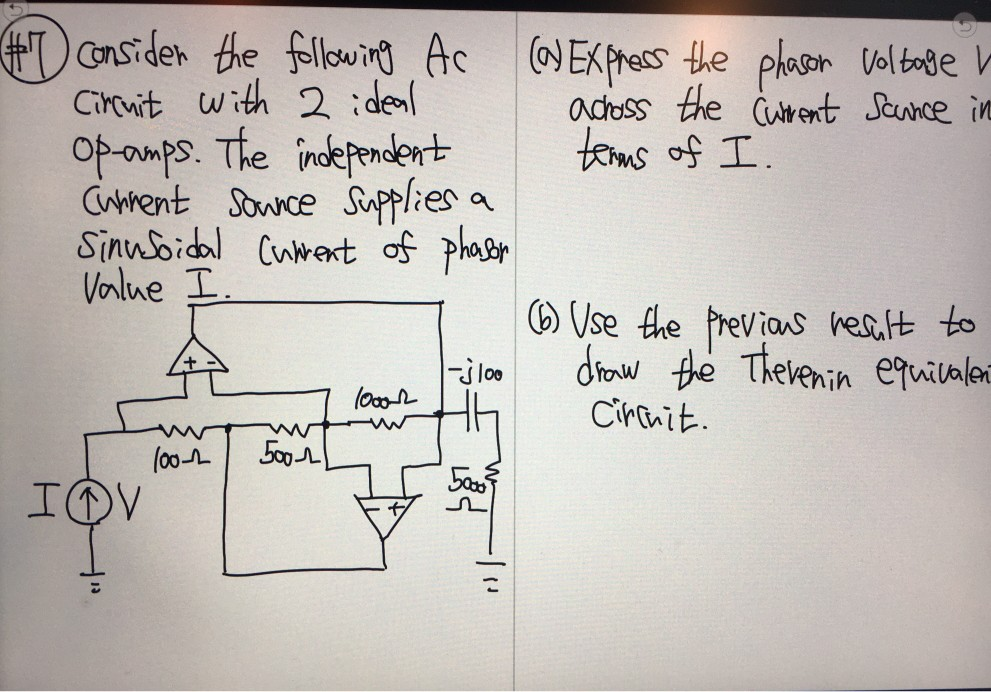 #7 Consider the following AC
Circuit with 2 ideal
Op-amps. The independent
Current Source Supplies a
Sinusoidal Current of phasor
Value I.
+ -
-j100
1000Ω
100Ω
500Ω
- +
5000
Ω
I
V
(a) EXpress the phasor Voltage V
across the Current Source in
terms of I.
(b) Use the previous result to
draw the Thevenin equivalen
Circuit.